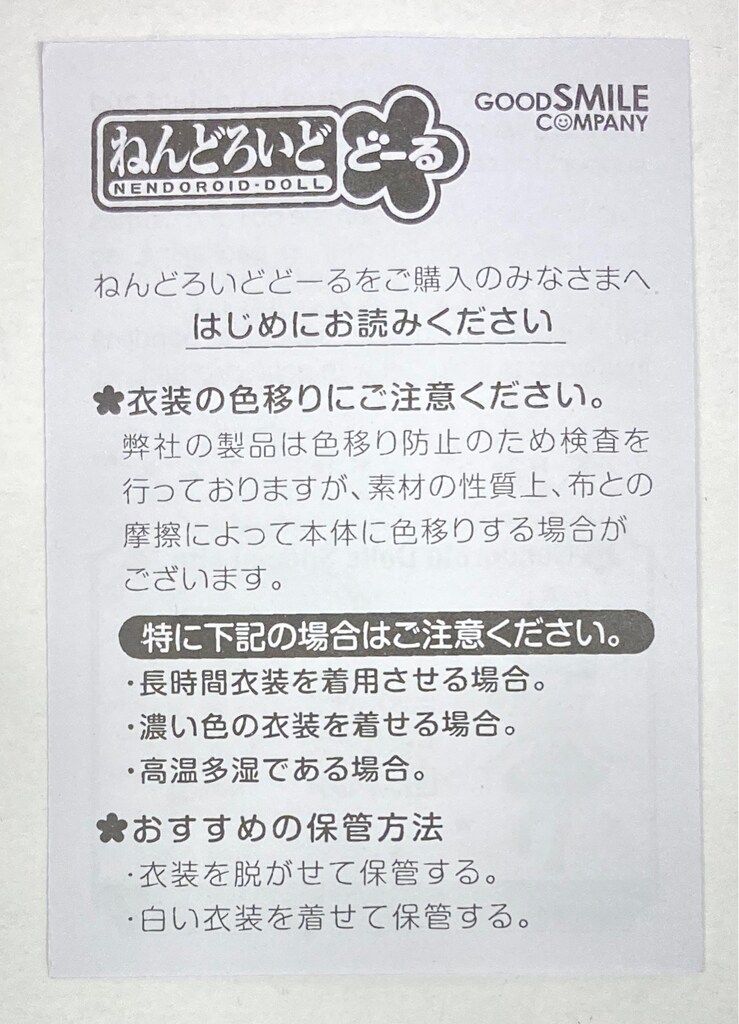 ねんどろいど どーる
NENDOROID・DOLL
GOODSMILE
COMPANY
ねんどろいどどーるをご購入のみなさまへ
はじめにお読みください
衣装の色移りにご注意ください。
弊社の製品は色移り防止のため検査を
行っておりますが、素材の性質上、布との
摩擦によって本体に色移りする場合が
ございます。
特に下記の場合はご注意ください。
・長時間衣装を着用させる場合。
・濃い色の衣装を着せる場合。
・高温多湿である場合。
おすすめの保管方法
・衣装を脱がせて保管する。
・白い衣装を着せて保管する。